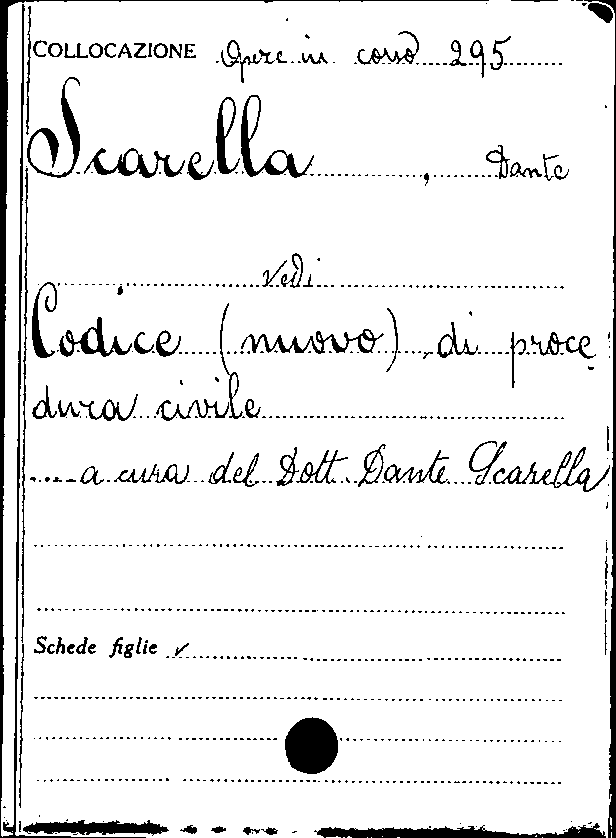 COLLOCAZIONE Opere in corso 295
Scarella, Dante
vedi
Codice (nuovo) di proce
dura civile
....a cura del Dott. Dante Scarella
Schede figlie ✓